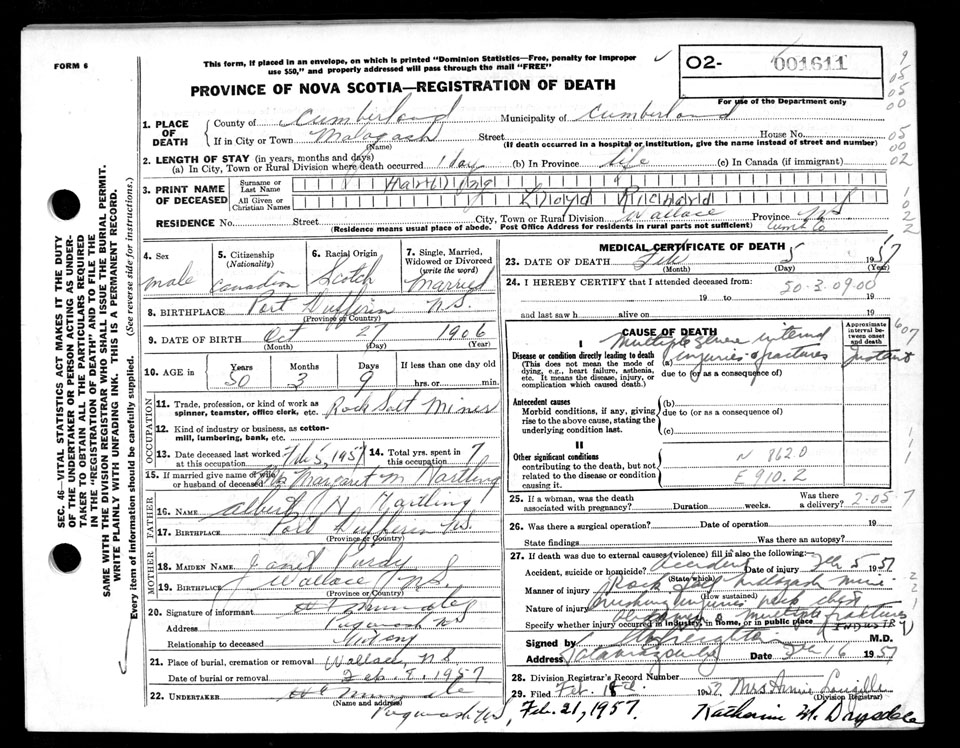 FORM 6
This form, if placed in an envelope, on which is printed "Dominion Statistics—Free, penalty for improper
use $50," and properly addressed will pass through the mail "FREE"
PROVINCE OF NOVA SCOTIA—REGISTRATION OF DEATH
O2- 001611
For use of the Department only
1. PLACE OF DEATH
County of Cumberland Municipality of Cumberland
If in City or Town Malagash Street House No.
(Name) (If death occurred in a hospital or institution, give the name instead of street and number)
2. LENGTH OF STAY (in years, months and days)
(a) In City, Town or Rural Division where death occurred 1 day (b) In Province life (c) In Canada (if immigrant)
3. PRINT NAME OF DECEASED
Surname or Last Name Hartling
All Given or Christian Names Lloyd Richard
RESIDENCE No. Street City, Town or Rural Division Wallace Province NS
(Residence means usual place of abode. Post Office Address for residents in rural parts not sufficient) Cumb Co
4. Sex male
5. Citizenship (Nationality) Canadian
6. Racial Origin Scotch
7. Single, Married, Widowed or Divorced (write the word) Married
8. BIRTHPLACE Port Dufferin N.S.
(Province or Country)
9. DATE OF BIRTH Oct 27 1906
(Month) (Day) (Year)
10. AGE in Years 50 Months 3 Days 9 If less than one day old hrs. or min.
OCCUPATION
11. Trade, profession, or kind of work as spinner, teamster, office clerk, etc. Rock Salt Miner
12. Kind of industry or business, as cotton-mill, lumbering, bank, etc.
13. Date deceased last worked at this occupation Feb 5, 1957
14. Total yrs. spent in this occupation 7
15. If married give name of wife or husband of deceased Mrs Margaret M Hartling
FATHER
16. NAME Albert N Hartling
17. BIRTHPLACE Port Dufferin N.S.
(Province or Country)
MOTHER
18. MAIDEN NAME Janet Purdy
19. BIRTHPLACE Wallace N.S.
(Province or Country)
20. Signature of informant
Address Pugwash NS
Relationship to deceased
21. Place of burial, cremation or removal Wallace, N.S
Date of burial or removal Feb. 1957
22. UNDERTAKER
(Name and address)
Pugwash NS
MEDICAL CERTIFICATE OF DEATH
23. DATE OF DEATH Feb 5 1957
(Month) (Day) (Year)
24. I HEREBY CERTIFY that I attended deceased from: 50-3-09-00
19 to 19
and last saw h alive on 19
CAUSE OF DEATH
Approximate interval between onset and death
I
Disease or condition directly leading to death
(This does not mean the mode of dying, e.g., heart failure, asthenia, etc. It means the disease, injury, or complication which caused death.)
Multiple severe internal
injuries & fractures Instant
due to (or as a consequence of)
Antecedent causes
Morbid conditions, if any, giving rise to the above cause, stating the underlying condition last.
(b)
due to (or as a consequence of)
(c)
II
Other significant conditions
contributing to the death, but not related to the disease or condition causing it.
N 862.0
E 910.2
25. If a woman, was the death associated with pregnancy? Duration weeks. Was there a delivery? 2-05-7
26. Was there a surgical operation? Date of operation 19
State findings Was there an autopsy?
27. If death was due to external causes (violence) fill in also the following:
Accident, suicide or homicide? Accident Date of injury Feb 5 1957
(State which)
Manner of injury Rock fall Malagash mine
(How sustained)
Nature of injury Crushing injuries chest
multiple fractures
Specify whether injury occurred in industry, in home, or in public place (INDUSTRY)
Signed by M.D.
Address Tatamagouche Date Feb 16 1957
28. Division Registrar's Record Number
29. Filed Feb. 18th 1957 Mrs Annie Langille
(Division Registrar)
Feb. 21, 1957. Katherine M. Drysdale
SEC. 46—VITAL STATISTICS ACT MAKES IT THE DUTY
OF THE UNDERTAKER OR PERSON ACTING AS UNDER-
TAKER TO OBTAIN ALL THE PARTICULARS REQUIRED
IN THE "REGISTRATION OF DEATH" AND TO FILE THE
SAME WITH THE DIVISION REGISTRAR WHO SHALL ISSUE THE BURIAL PERMIT.
WRITE PLAINLY WITH UNFADING INK. THIS IS A PERMANENT RECORD.
Every item of information should be carefully supplied. (See reverse side for instructions.)